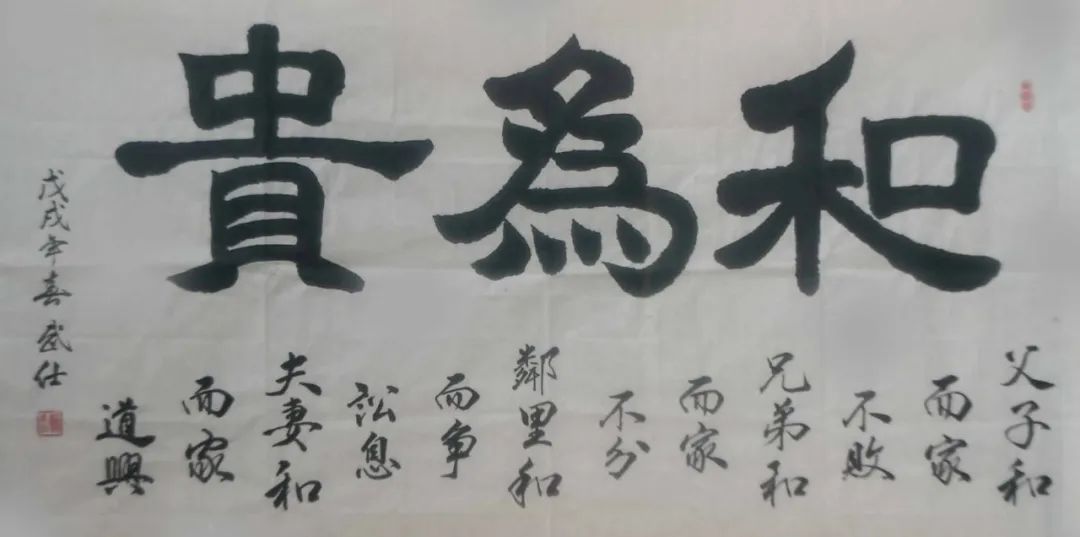 和為貴
父子和
而家
不敗
兄弟和
而家
不分
鄰里和
而争
訟息
夫妻和
而家
道興
戊戌年春武仕